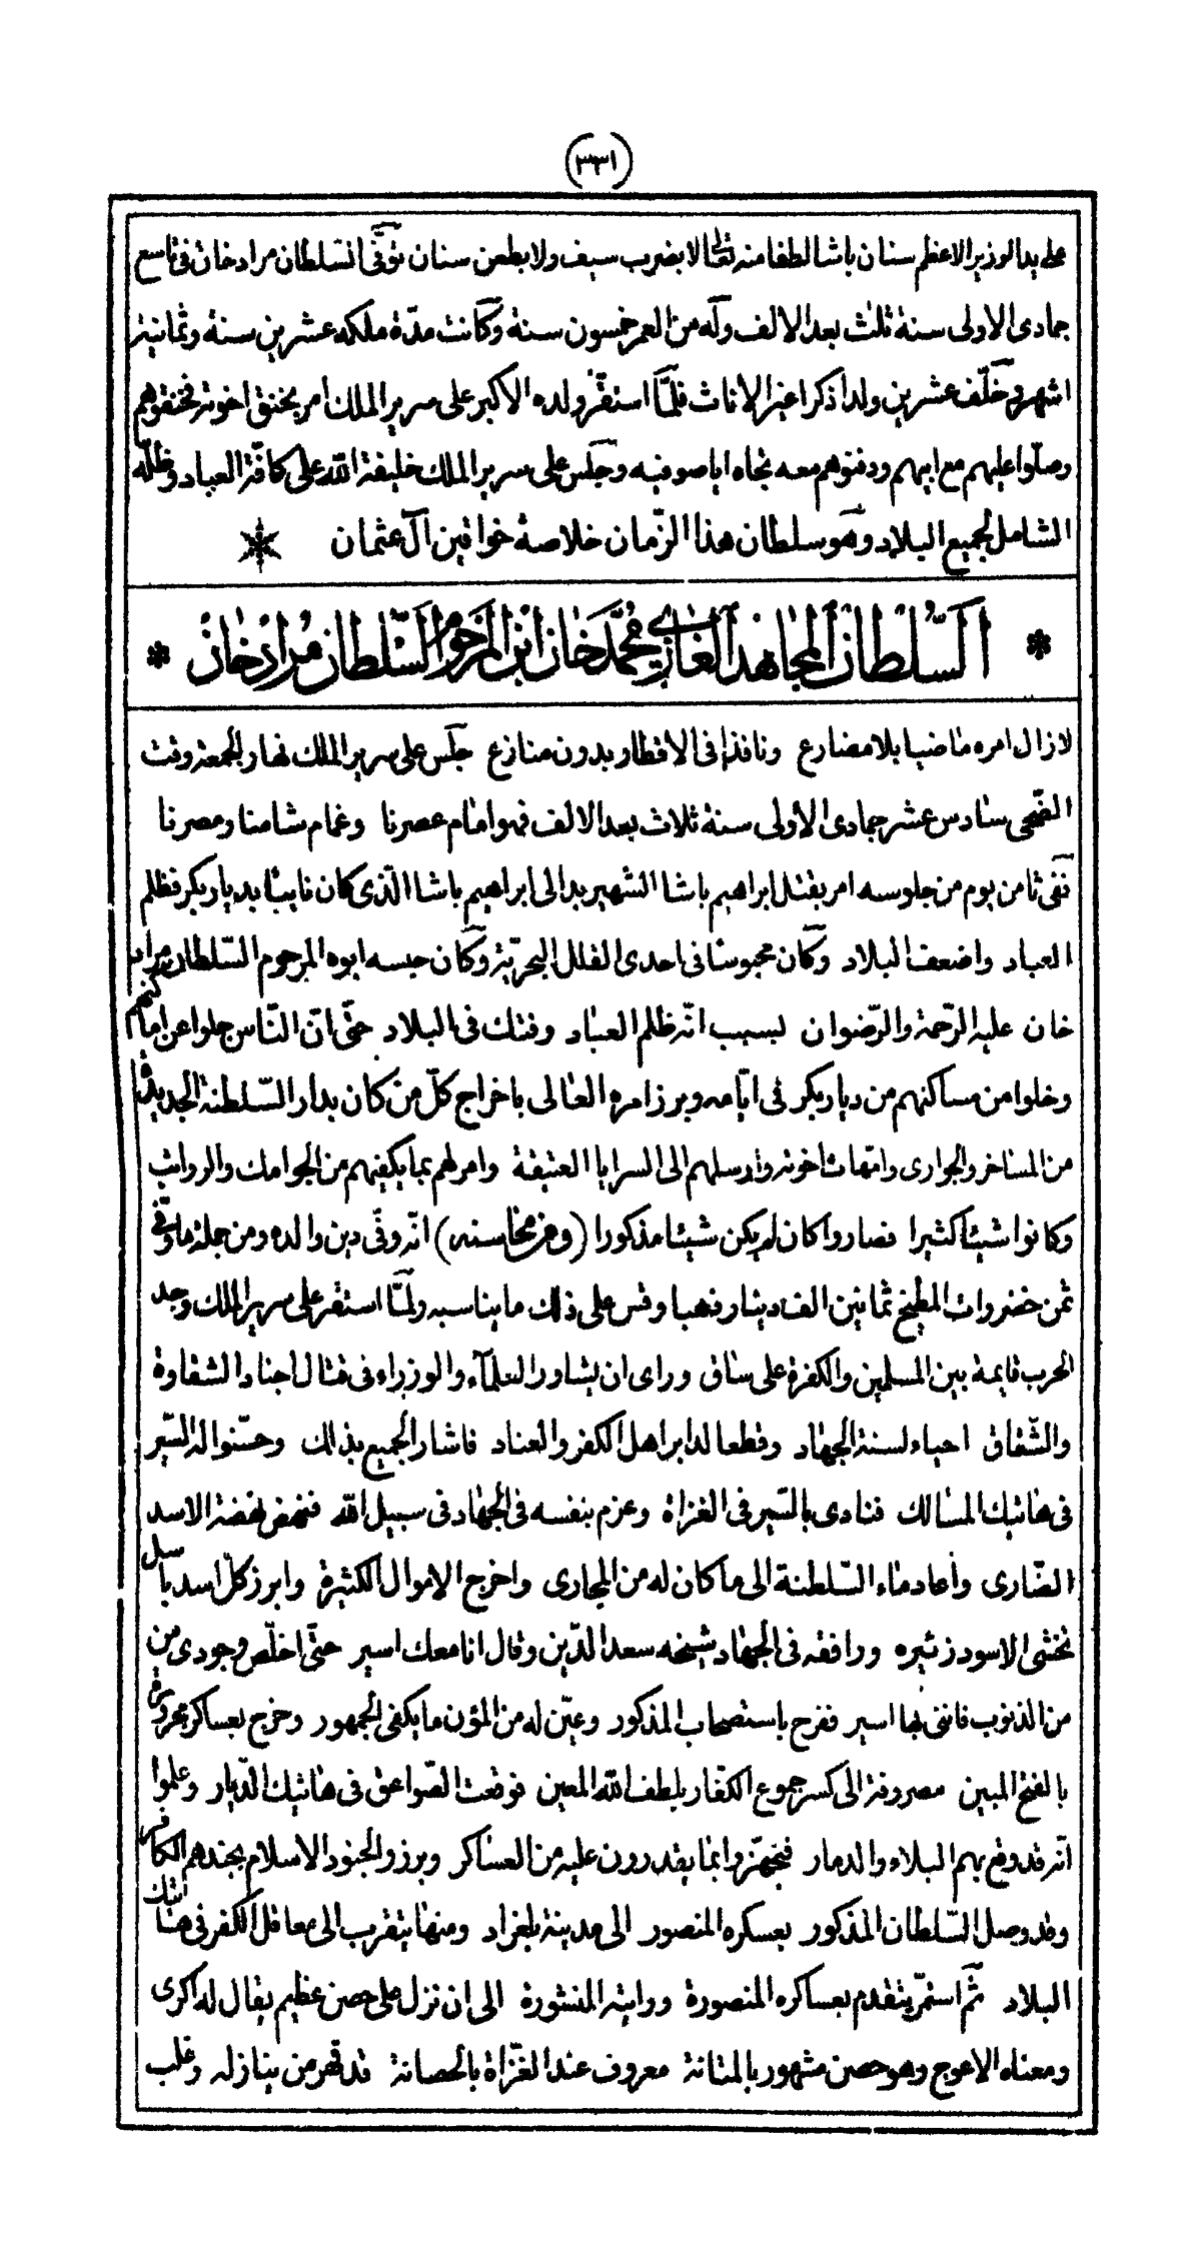 (٣٣١)
على يد الوزير الاعظم سنان باشا لطفا منه تعالى لا بضرب سيف ولا بطعن سنان توفّى السلطان مراد خان فى تاسع
جمادى الاولى سنة ثلث بعد الالف وله من العمر خمسون سنة وكانت مدّة ملكه عشرين سنة وثمانية
اشهر وخلّف عشرين ولدا ذكرا غير الاناث فلمّا استقرّ ولده الاكبر على سرير الملك امر بخنق اخوته فخنقوهم
وصلّوا عليهم مع ابيهم ودفنوهم معه تجاه اياصوفيه وجلس على سرير الملك خليفة الله على كافّة العباد وظلّه
الشامل لجميع البلاد وهو سلطان هذا الزّمان خلاصة خواقين آل عثمان *
* السّلطان المجاهد الغازى محمّد خان ابن المرحوم السّلطان مراد خان *
لازال امره ماضيا بلا مضارع ونافذا فى الاقطار بدون منازع جلس على سرير الملك نهار الجمعة وقت
الضّحى سادس عشر جمادى الاولى سنة ثلاث بعد الالف فهو امام عصرنا وغمام شامنا ومصرنا
ففى ثامن يوم من جلوسه امر بقتل ابراهيم باشا الشهير بدالى ابراهيم باشا الّذى كان نايبا بديار بكر فظلم
العباد واضعف البلاد وكان محبوسا فى احدى القلل البحريّة وكان حبسه ابوه المرحوم السّلطان مراد
خان عليه الرّحمة والرّضوان لسبب انّه ظلم العباد وفتك فى البلاد حتّى انّ النّاس جلوا عن اماكنهم
وخلوا من مساكنهم من ديار بكر فى ايّامه وبرز امره العالى باخراج كلّ من كان بدار السّلطنة الجديدة
من المساخر والجوارى وامّهات اخوته وارسلهم الى السرايا العتيقة وامر لهم بما يكفيهم من الجوامك والرواتب
وكانوا شيئا كثيرا فصاروا كان لم يكن شيئا مذكورا (ومن محاسنه) انّه وفّى دين والده ومن جملة ما وفّى
ثمن خضروات المطبخ ثمانين الف دينار ذهبا وقس على ذلك ما يناسبه ولمّا استقر على سرير الملك وجد
الحرب قايمة بين المسلمين والكفرة على ساق وراى ان يشاور العلمآء والوزراء فى قتال اجناد الشقاوة
والشّقاق احياء لسنة الجهاد وقطعا لدابر اهل الكفر والعناد فاشار الجميع بذلك وحسّنوا له السّير
فى هاتيك المسالك فنادى بالسّير فى الغزاة وعزم بنفسه فى الجهاد فى سبيل الله فنهض نهضة الاسد
الضّارى واعاد ماء السّلطنة الى ما كان له من المجارى واخرج الاموال الكثيرة وابرز كلّ اسد باسل
تخشى الاسود زئيره ورافقه فى الجهاد شيخه سعد الدّين وقال انا معك اسير حتّى اخلّص وجودى من
من الذنوب فاننى بها اسير ففرح باستصحاب المذكور وعيّن له من المؤن ما يكفى الجمهور وخرج بعساكر محروسة
بالفتح المبين مصروفة الى كسر جموع الكفّار بلطف الله المعين فوقعت الصّواعق فى هاتيك الدّيار وعلموا
انّه قد وقع بهم البلاء والدمار فتجهّزوا بما يقدرون عليه من العساكر وبرزوا لجنود الاسلام بجندهم الكافر
وقد وصل السّلطان المذكور بعسكره المنصور الى مدينة بلغراد ومنها يتقرب الى معاقل الكفر فى هاتيك
البلاد ثمّ استمرّ يتقدم بعساكره المنصورة ورايته المنشورة الى ان نزل على حصن عظيم يقال له اكرى
ومعناه الاعوج وهو حصن مشهور بالمتانة معروف عند الغزاة بالحصانة قد قهر من ينازله وغلب